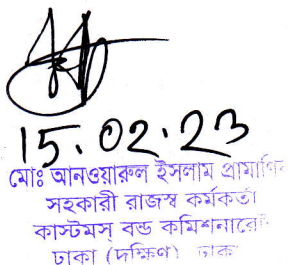 15.02.23
মোঃ আনওয়ারুল ইসলাম
সহকারী রাজস্ব কর্মকর্তা
কাস্টমস্ বন্ড
ঢাকা (দক্ষিণ) ঢাকা